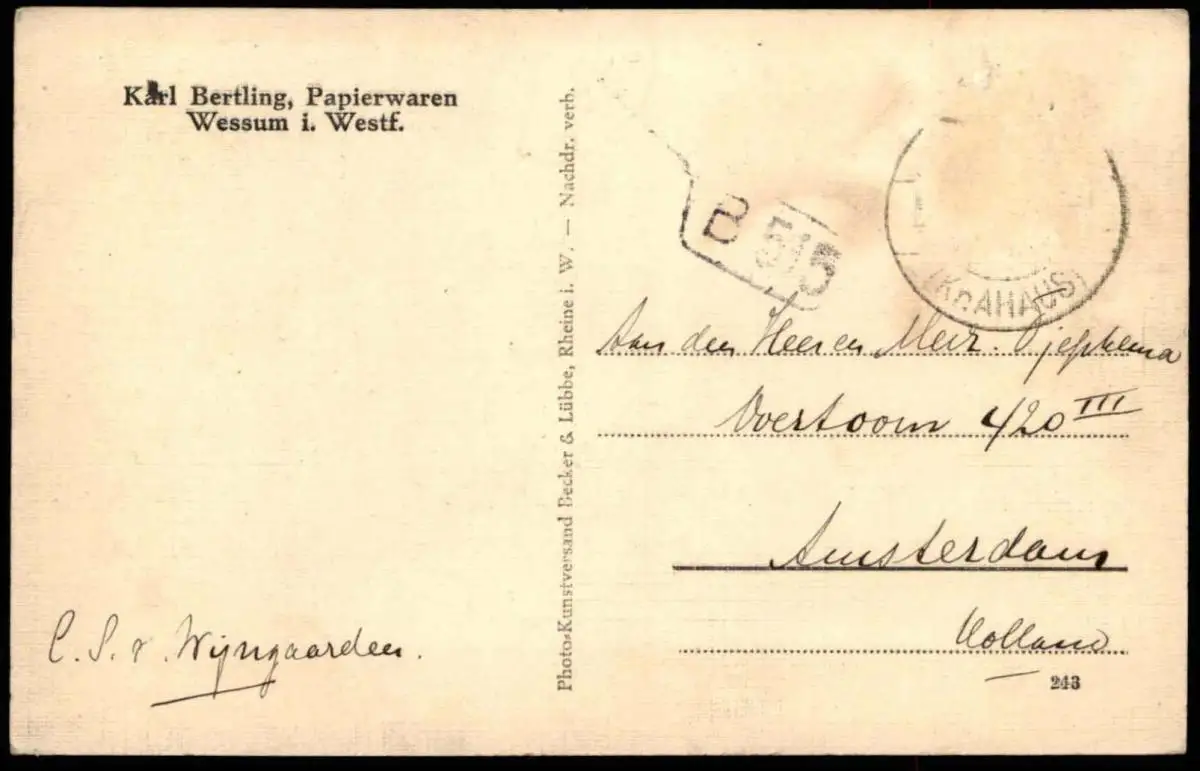 Karl Bertling, Papierwaren
Wessum i. Westf.
Photo-Kunstversand Becker & Lübbe, Rheine i. W. — Nachdr. verb.
B 515
(Kr. AHAUS)
Aan den Heer en Meiz. Tjepkema
Overtoom 420 III
Amsterdam
Holland
C. S. v. Wijngaarden.
243